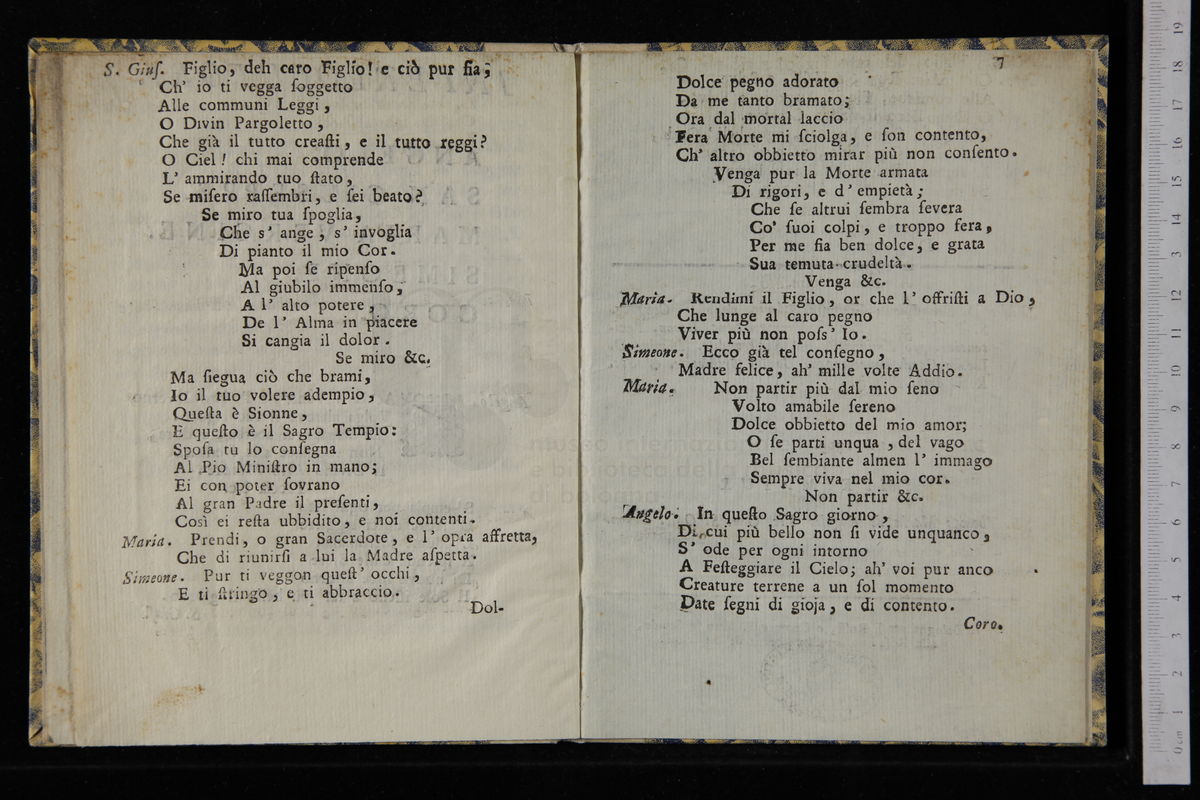 S. Giuſ. Figlio, deh caro Figlio! e ciò pur ſia;
Ch' io ti vegga ſoggetto
Alle communi Leggi,
O Divin Pargoletto,
Che già il tutto creaſti, e il tutto reggi?
O Ciel! chi mai comprende
L' ammirando tuo ſtato,
Se miſero raſſembri, e ſei beato?
Se miro tua ſpoglia,
Che s' ange, s' invoglia
Di pianto il mio Cor.
Ma poi ſe ripenſo
Al giubilo immenſo,
A l' alto potere,
De l' Alma in piacere
Si cangia il dolor.
Se miro &c.
Ma ſiegua ciò che brami,
Io il tuo volere adempio,
Queſta è Sionne,
E queſto è il Sagro Tempio:
Spoſa tu lo conſegna
Al Pio Miniſtro in mano;
Ei con poter ſovrano
Al gran Padre il preſenti,
Così ei reſta ubbidito, e noi contenti.
Maria. Prendi, o gran Sacerdote, e l' opra affretta,
Che di riunirſi a lui la Madre aſpetta.
Simeone. Pur ti veggon queſt' occhi,
E ti ſtringo, e ti abbraccio.
Dol-
7
Dolce pegno adorato
Da me tanto bramato;
Ora dal mortal laccio
Fera Morte mi ſciolga, e ſon contento,
Ch' altro obbietto mirar più non conſento.
Venga pur la Morte armata
Di rigori, e d' empietà;
Che ſe altrui ſembra ſevera
Co' ſuoi colpi, e troppo fera,
Per me ſia ben dolce, e grata
Sua temuta crudeltà.
Venga &c.
Maria. Rendimi il Figlio, or che l' offriſti a Dio,
Che lunge al caro pegno
Viver più non poſs' Io.
Simeone. Ecco già tel conſegno,
Madre felice, ah' mille volte Addio.
Maria. Non partir più dal mio ſeno
Volto amabile ſereno
Dolce obbietto del mio amor;
O ſe parti unqua, del vago
Bel ſembiante almen l' immago
Sempre viva nel mio cor.
Non partir &c.
Angelo. In queſto Sagro giorno,
Di cui più bello non ſi vide unquanco,
S' ode per ogni intorno
A Feſteggiare il Cielo; ah' voi pur anco
Creature terrene a un ſol momento
Date ſegni di gioja, e di contento.
Coro.
0 cm 1 2 3 4 5 6 7 8 9 10 11 12 13 14 15 16 17 18 19